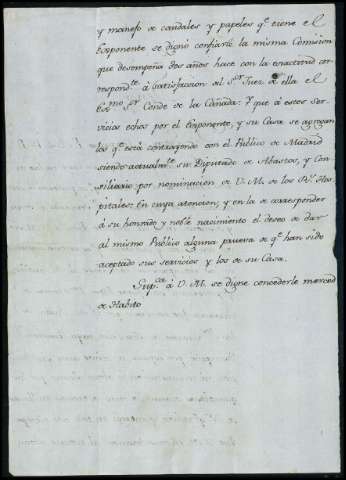 y manejo de caudales y papeles q.e tiene el
Exponente se dignó confiarle la misma Comision
que desempeña dos años hace con la exactitud cor-
respond.te á satisfaccion del S.or Juez de ella el
Ex.mo S.or Conde de la Cañada: Y que á estos Ser-
vicios echos por el Exponente, y su Casa se agregan
los q.e está contrayendo con el Publico de Madrid
siendo actualm.te su Diputado de Abastos, y Con-
siliario por nominacion de V. M. de los R.s Hos-
pitales: En cuya atencion; y en la de corresponder
á su honrado y noble nacimiento el deseo de dar
al mismo Publico alguna prueva de q.e han sido
aceptado sus servicios y los de su Casa.
Sup.ca á V. M. se digne concederle merced
de Habito